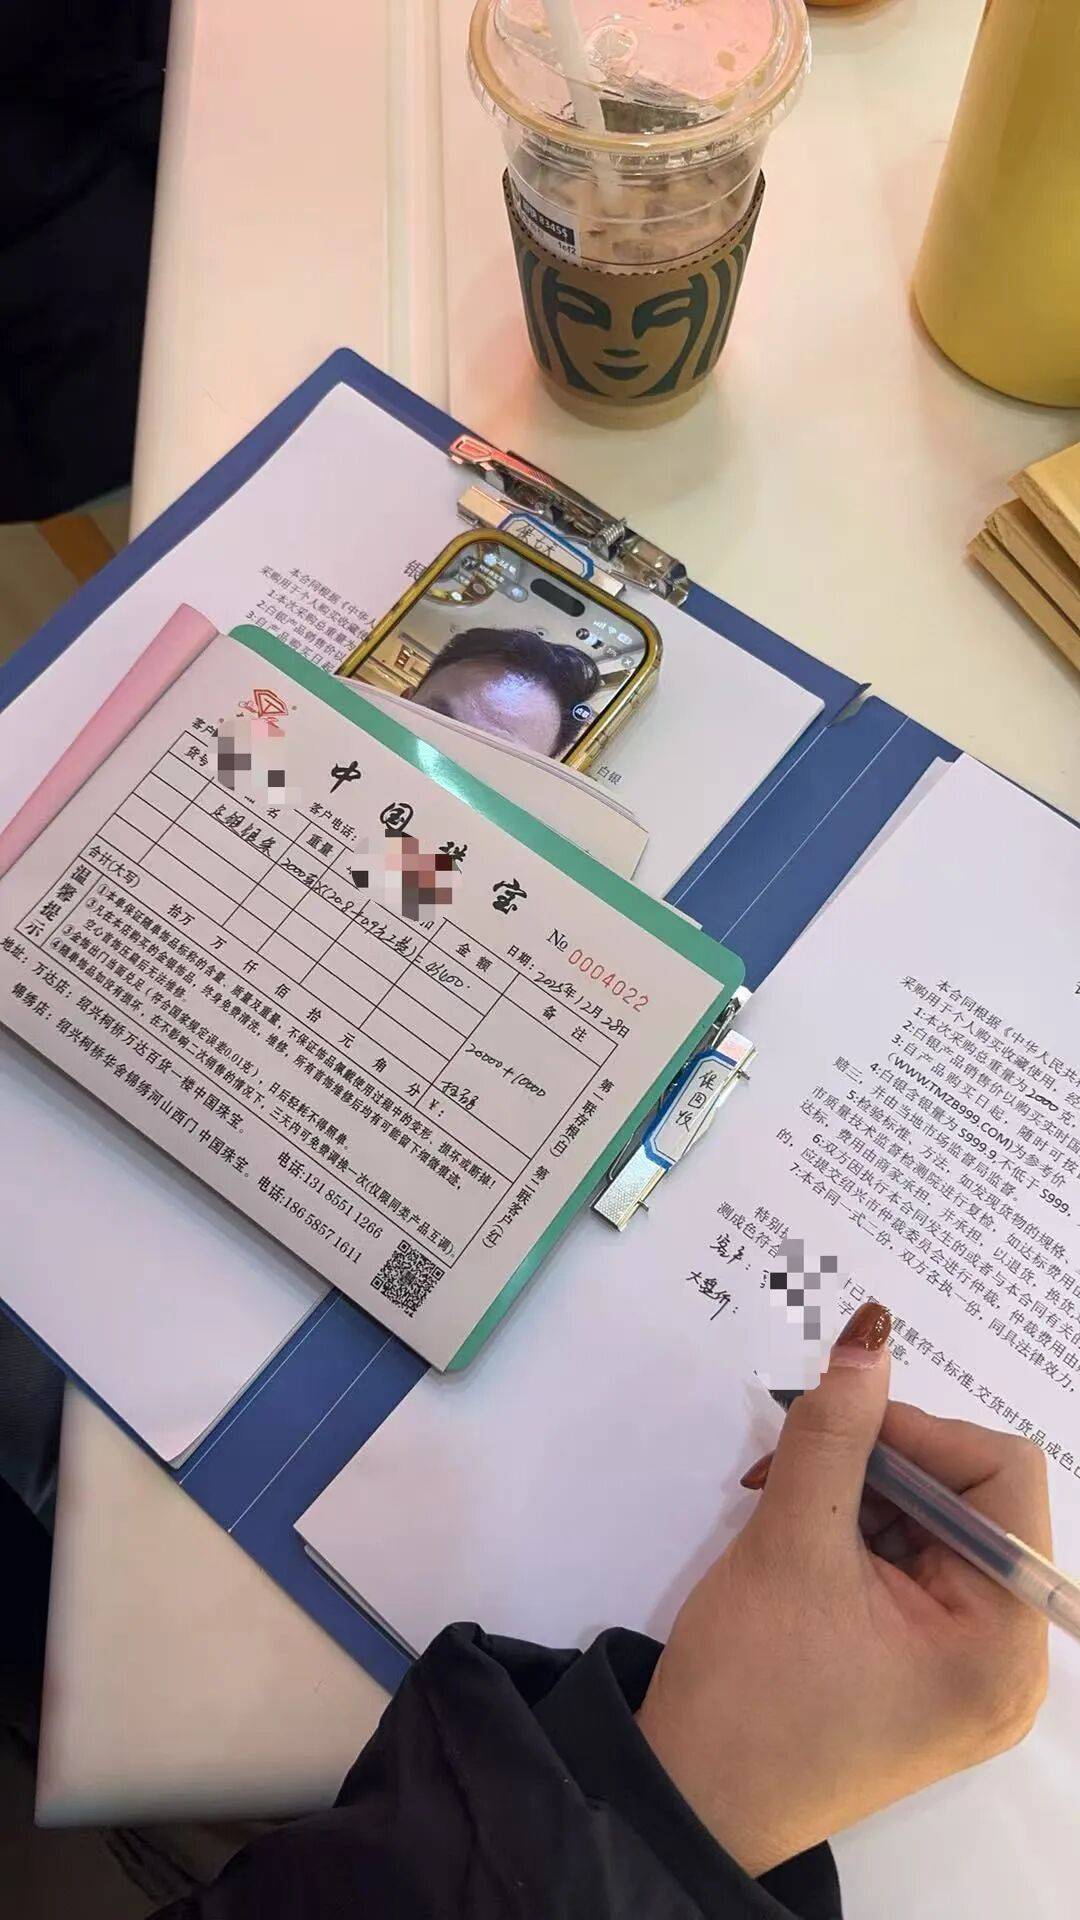 8345$
1of2
银
本合同根据《中华人
采购用于个人购买收藏使
1:本次采购总重量为
2:白银产品销售价以
3:日产品购买日起
白银
中国珠宝
客户
客户电话:
No 0004022
日期: 2025年12月28日
货号 名 重量 金额 备注
银条 2000克
20000+10000
合计(大写) 拾 万 仟 佰 拾 元 角 分 ¥:
温馨提示
①本单保证随单饰品标称的含量、质量及重量,不保证饰品佩戴使用过程中的变形、损坏或断掉!
②凡在本店购买的金银饰品,终身免费清洗、维修,所有首饰维修后均有可能留下细微痕迹,
空心首饰压扁后无法维修。
③金饰出门当面兑足(符合国家规定误差0.01克),日后轻秏不得照单。
④随单饰品如没有损坏,在不影响二次销售的情况下,三天内可免费调换一次(仅限同类产品互调)。
地址:万达店:绍兴柯桥万达百货一楼中国珠宝。 电话:131 8551 1266
锦绣店:绍兴柯桥华舍锦绣河山西门 中国珠宝。电话:186 5857 1611
第一联存根(白) 第二联客户(红)
本合同根据《中华人民共
采购用于个人购买收藏使用,经
1:本次采购总重量为2000克,
2:白银产品销售价以购买实时国
3:日产品购买日起,随时可按
(WWW.TMZB999.COM)为参考价
4:白银含银量为 S999.9 不低于 S999,
赔三,并由当地市场监督局监督。
5:检验标准、方法,如发现货物的规格、
市质量技术监督检测院进行复检,如达标费用由
达标,费用由商家承担,并承担,以退货,换货
6:双方因执行本合同发生的或者与本合同有关的
的,应提交绍兴市仲裁委员会进行仲裁,仲裁费用由
7:本合同一式二份,双方各执一份,同具法律效力,
特别
测成色符合
重量符合标准,交货时货品成色
客户:
大盘价: